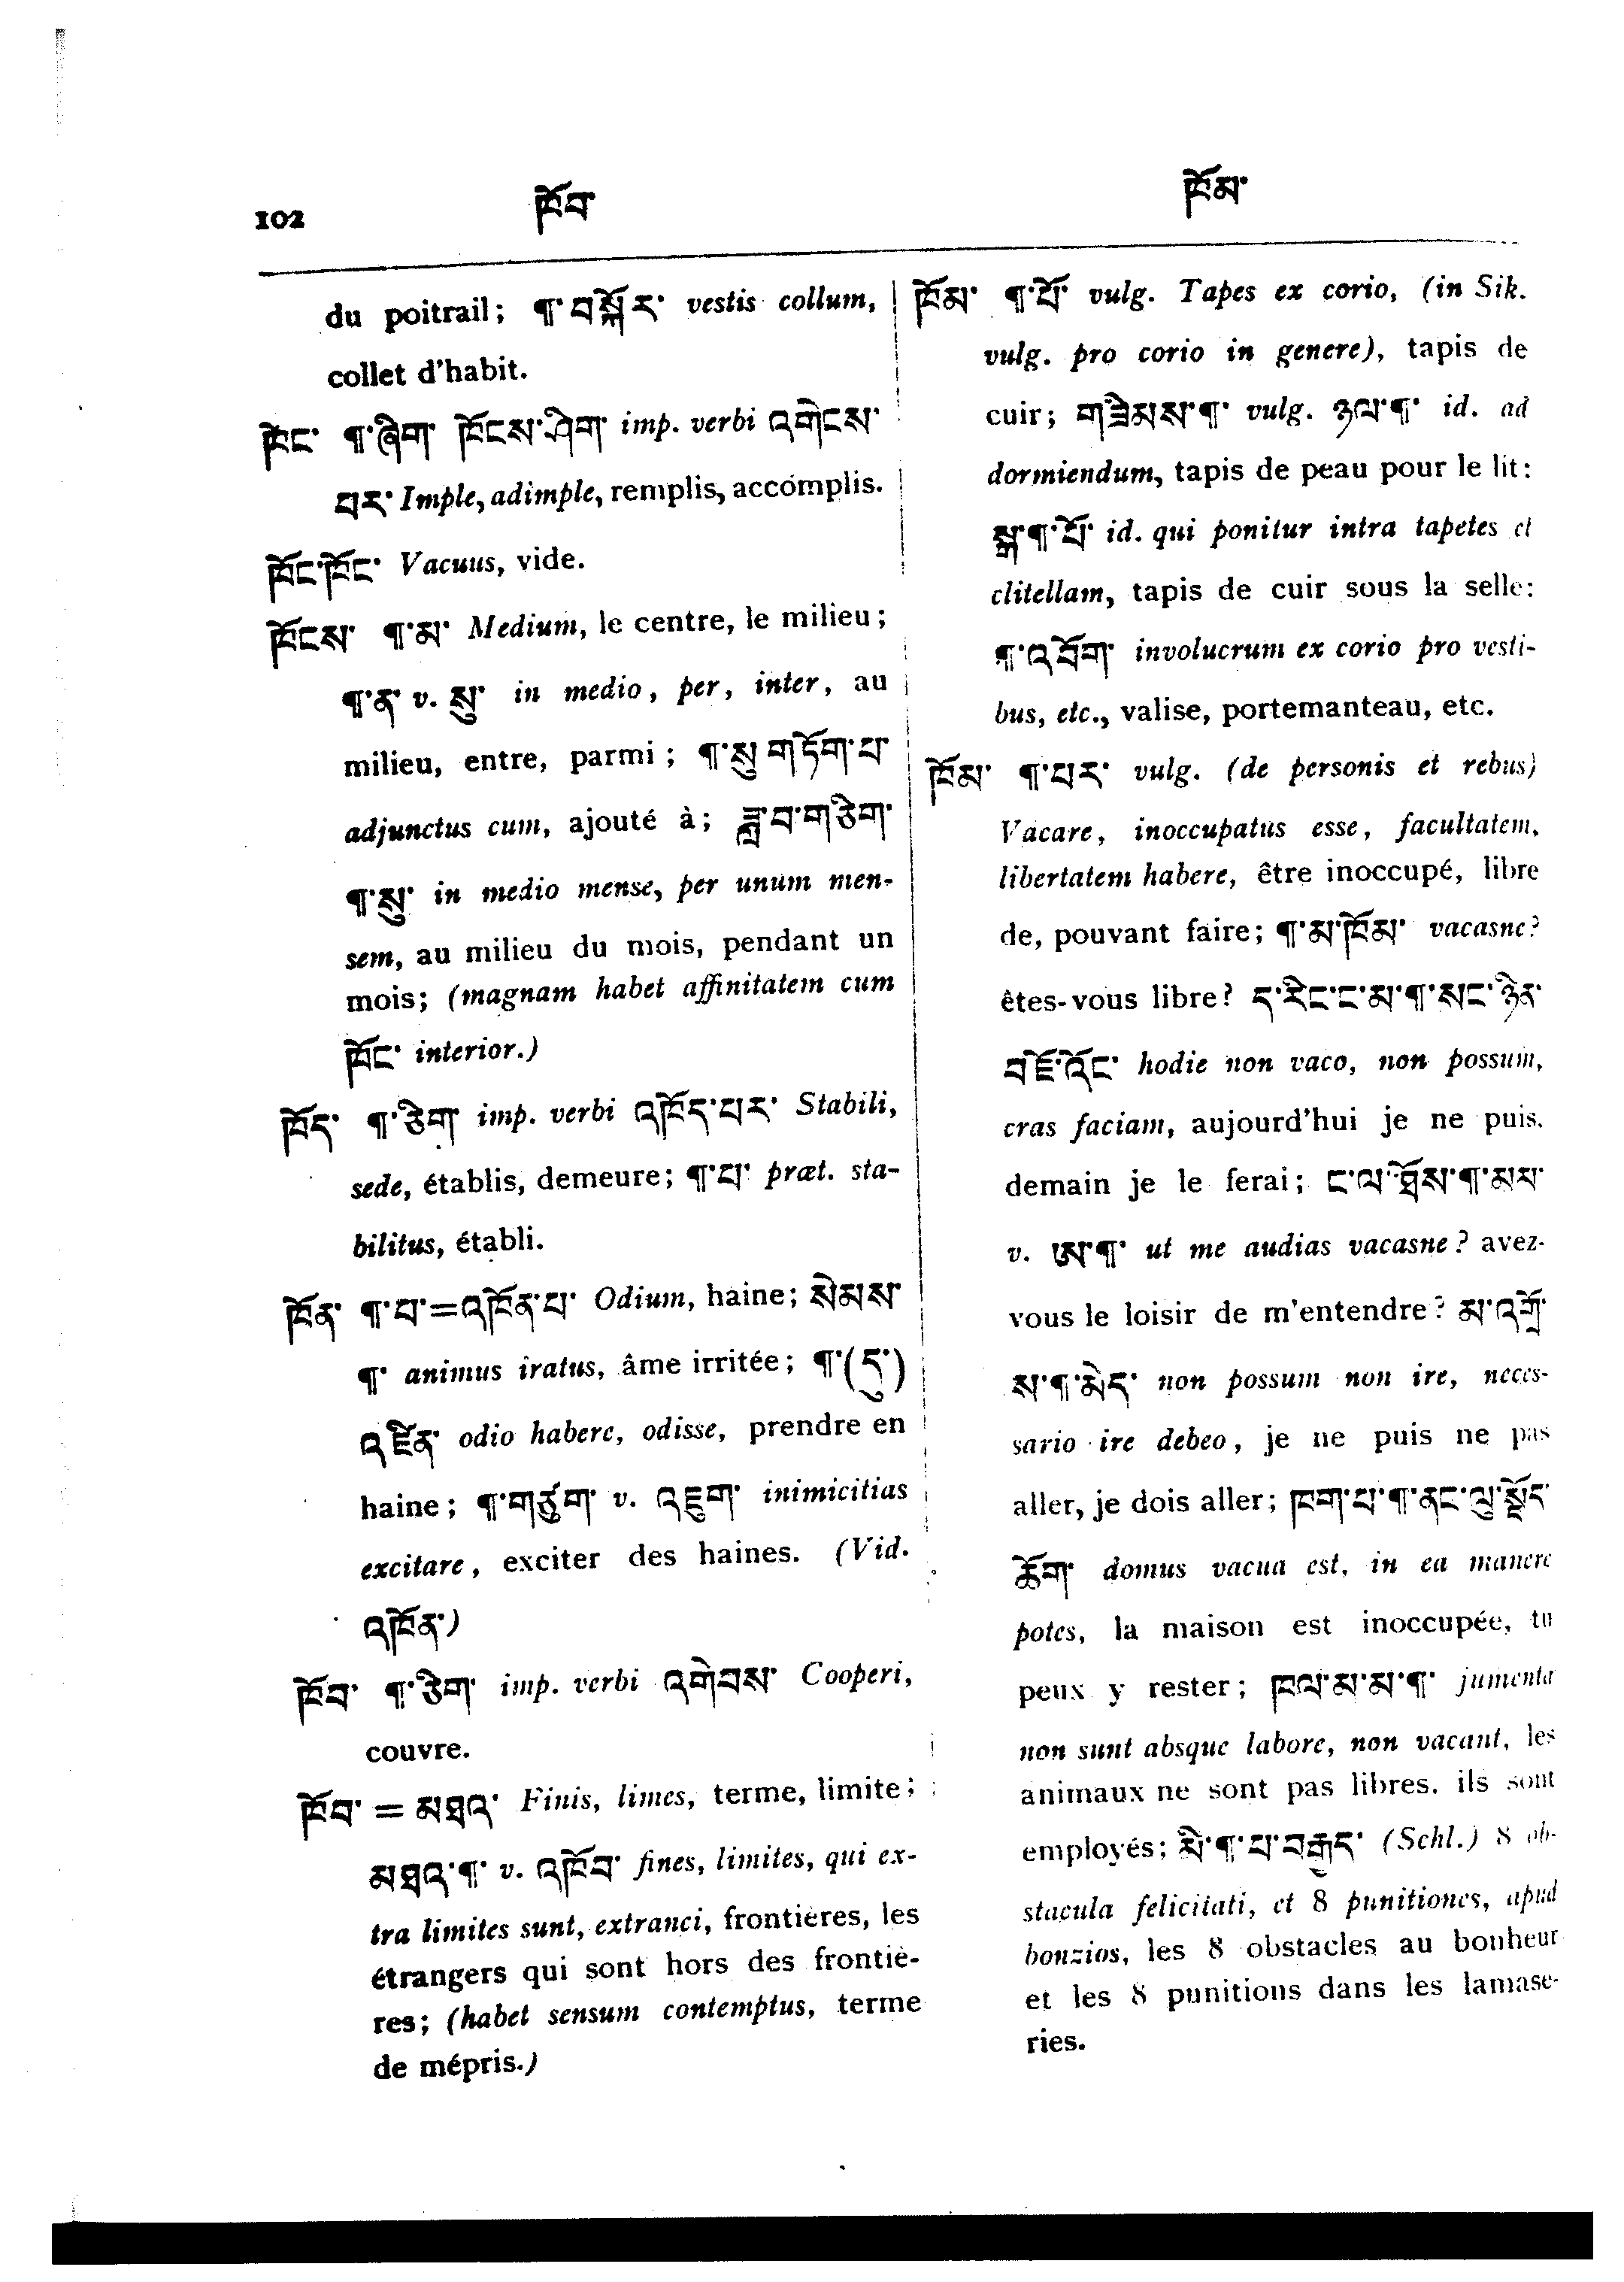 102 ཁོབ་ ཁོམ་
du poitrail; ¶་བསྐོར་ vestis collum,
collet d'habit.
ཁོང་ ¶་ཞིག་ ཁོངས་ཤིག་ imp. verbi འགེངས་
པར་ Imple, adimple, remplis, accomplis.
ཁོང་ཁོང་ Vacuus, vide.
ཁོངས་ ¶་མ་ Medium, le centre, le milieu;
¶་ན་ v. སུ་ in medio, per, inter, au
milieu, entre, parmi; ¶་སུ གཏོག་པ་
adjunctus cum, ajouté à; ཟླ་བ་གཅིག་
¶་སུ་ in medio mense, per unum men-
sem, au milieu du mois, pendant un
mois; (magnam habet affinitatem cum
ཁོང་ interior.)
ཁོད་ ¶་ཅིག་ imp. verbi འཁོད་པར་ Stabili,
sede, établis, demeure; ¶་པ་ præt. sta-
bilitus, établi.
ཁོན་ ¶་པ་=འཁོན་པ་ Odium, haine; སེམས་
¶་ animus iratus, âme irritée; ¶་(དུ་)
འཛིན་ odio habere, odisse, prendre en
haine; ¶་གཙུག་ v. འཇུག་ inimicitias
excitare, exciter des haines. (Vid.
འཁོན་)
ཁོབ་ ¶་ཅིག་ imp. verbi འགེབས་ Cooperi,
couvre.
ཁོབ་ = མཐའ་ Finis, limes, terme, limite;
མཐའ་¶་ v. འཁོབ་ fines, limites, qui ex-
tra limites sunt, extranei, frontières, les
étrangers qui sont hors des frontiè-
res; (habet sensum contemptus, terme
de mépris.)
ཁོམ་ ¶་པོ་ vulg. Tapes ex corio, (in Sik.
vulg. pro corio in genere), tapis de
cuir; གཟིམས་¶་ vulg. ཉལ་¶་ id. ad
dormiendum, tapis de peau pour le lit:
སྒ་¶་པོ་ id. qui ponitur intra tapetes et
clitellam, tapis de cuir sous la selle:
¶་འབོག་ involucrum ex corio pro vesti-
bus, etc., valise, portemanteau, etc.
ཁོམ་ ¶་པར་ vulg. (de personis et rebus)
Vacare, inoccupatus esse, facultatem,
libertatem habere, être inoccupé, libre
de, pouvant faire; ¶་མ་ཁོམ་ vacasne?
êtes-vous libre? ད་རིང་ང་མ་¶་སང་ཉིན་
བཇོ་འོང་ hodie non vaco, non possum,
cras faciam, aujourd'hui je ne puis,
demain je le ferai; ང་ལ་ཐོས་¶་མས་
v. ཨ་¶་ ut me audias vacasne? avez-
vous le loisir de m'entendre? མ་འགྲོ་
ས་¶་མེད་ non possum non ire, neces-
sario ire debeo, je ne puis ne pas
aller, je dois aller; ཁག་པ་¶་ནང་ལུ་སྡོད་
ཆོག་ domus vacua est, in ea manere
potes, la maison est inoccupée, tu
peux y rester; ཁལ་མ་མ་¶་ jumenta
non sunt absque labore, non vacant, les
animaux ne sont pas libres, ils sont
employés; མི་¶་པ་བརྒྱད་ (Schl.) 8 ob-
stacula felicitati, et 8 punitiones, apud
bonzios, les 8 obstacles au bonheur
et les 8 punitions dans les lamase-
ries.